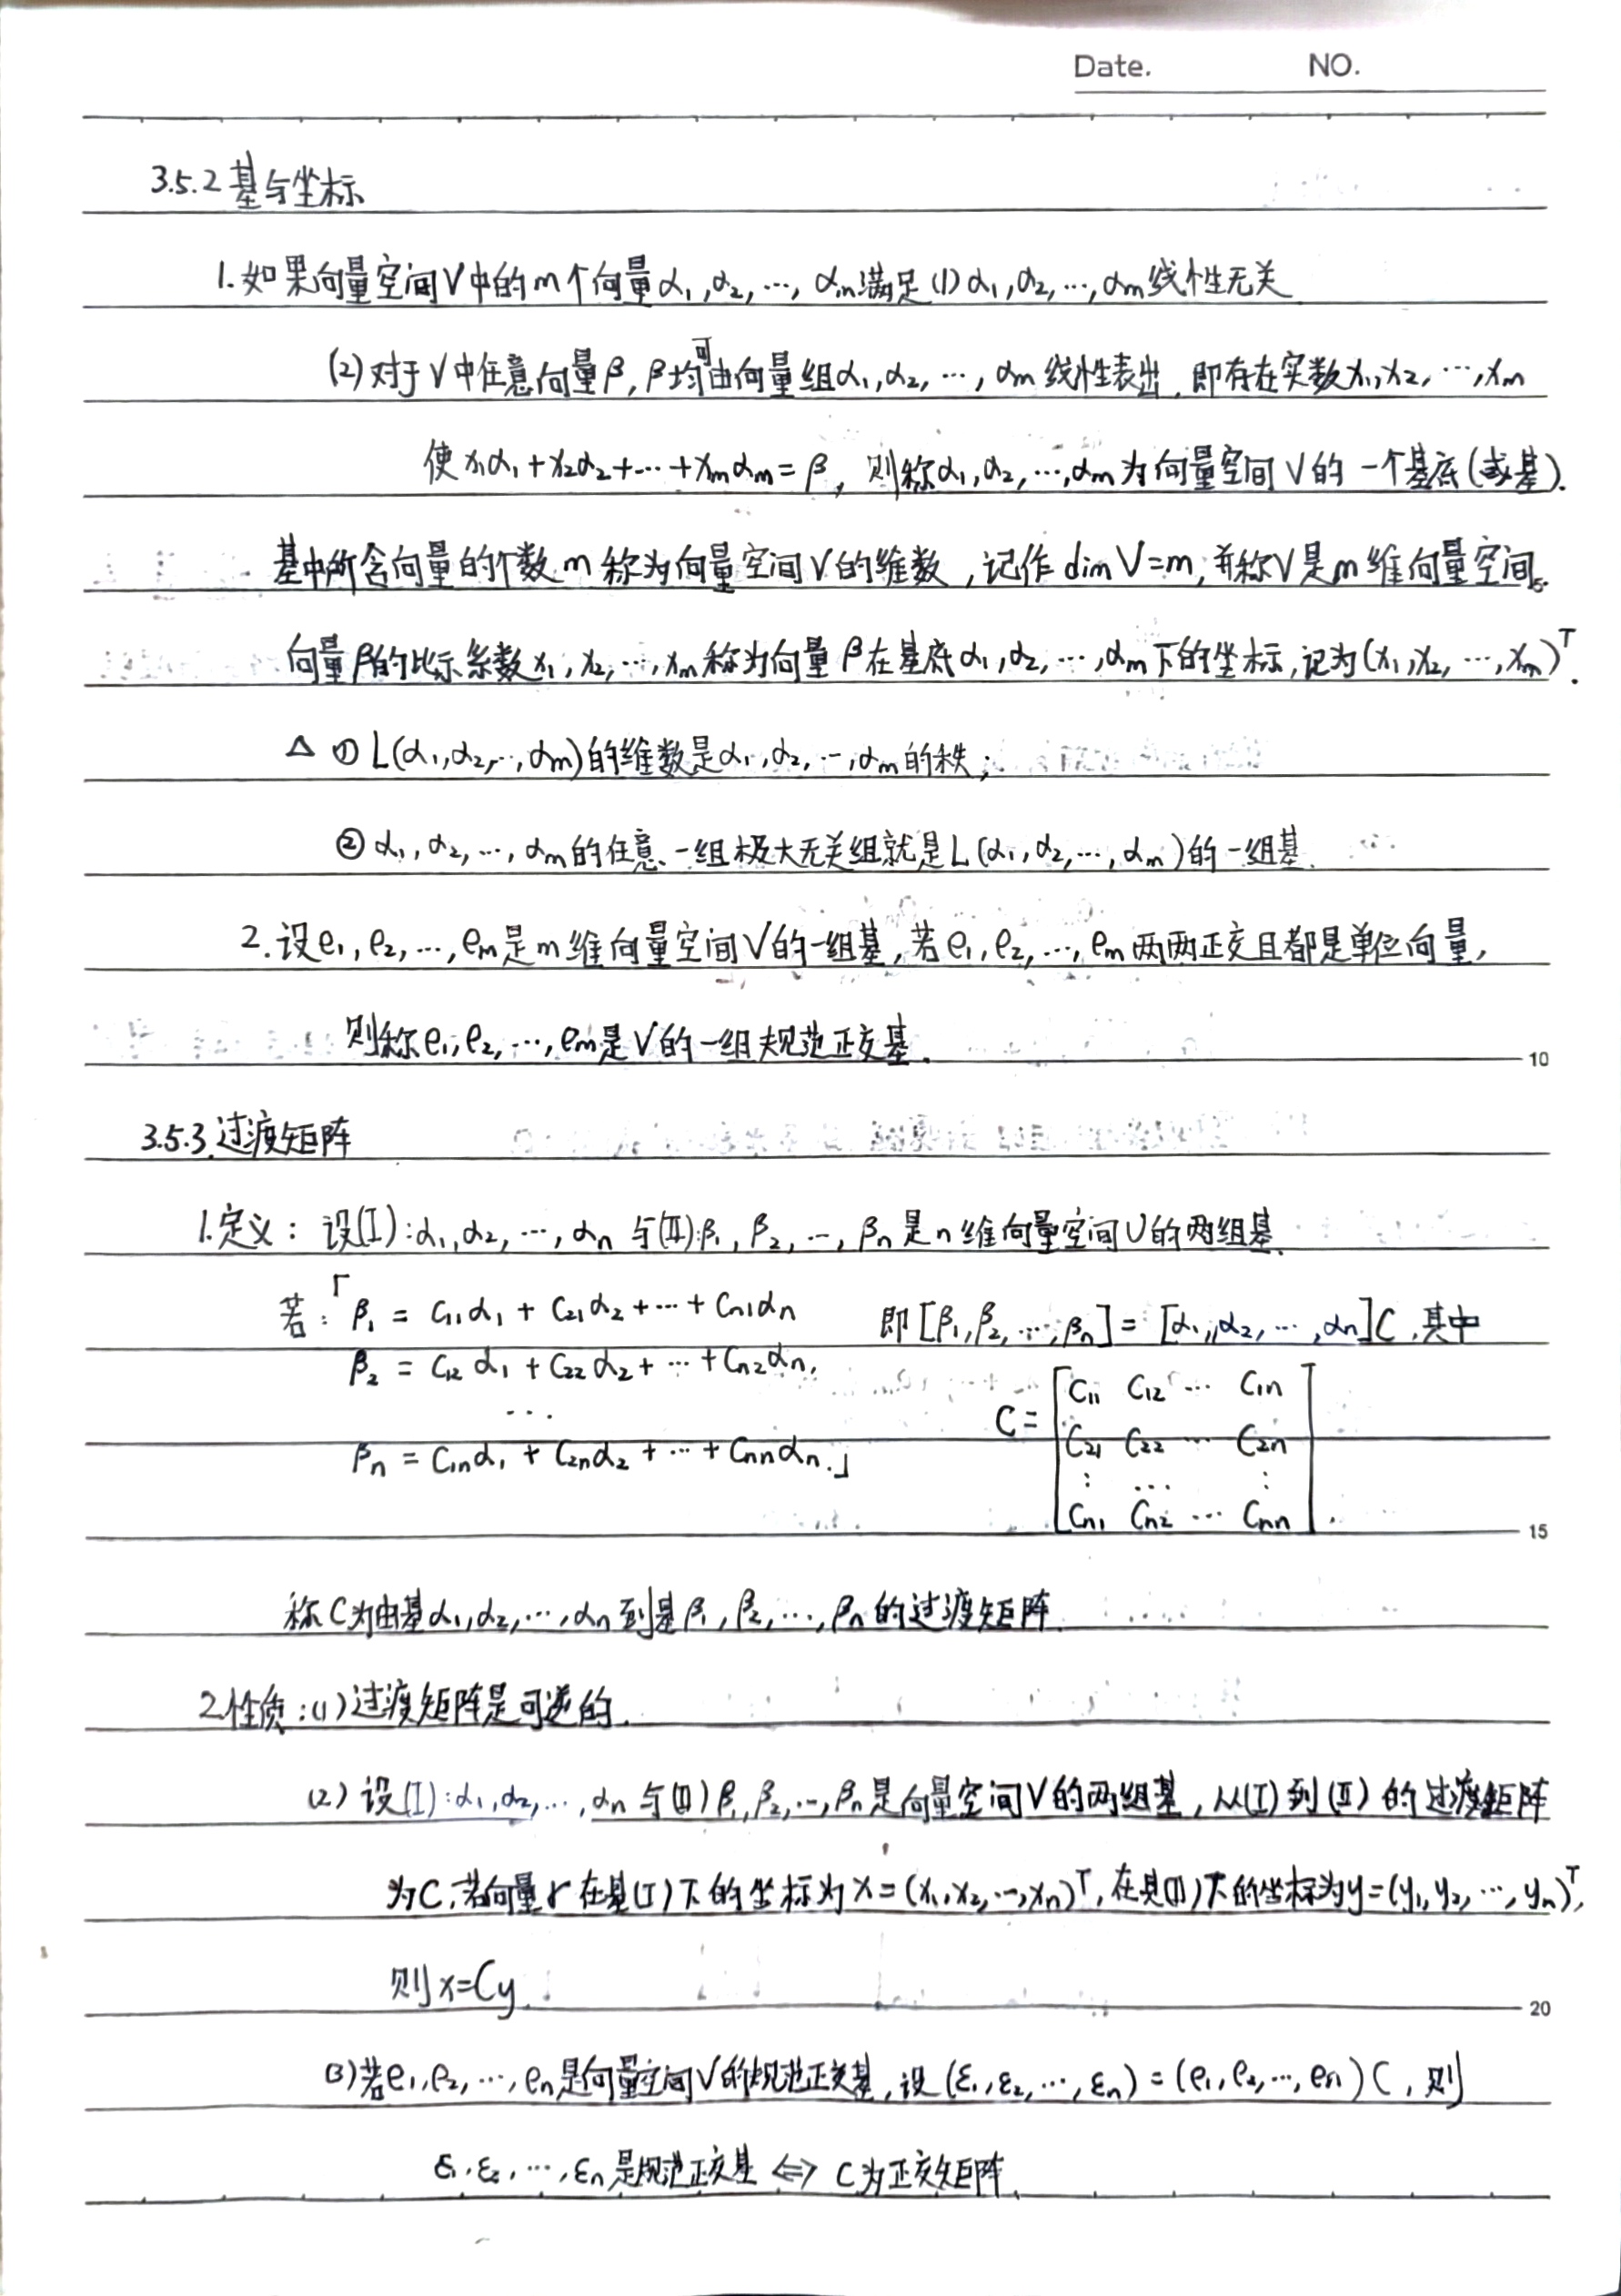 Date. NO.
3.5.2 基与坐标
1.如果向量空间V中的m个向量α₁,α₂,…,αm满足(1)α₁,α₂,…,αm线性无关
(2)对于V中任意向量β,β均可由向量组α₁,α₂,…,αm线性表出,即存在实数x₁,x₂,…,xm
使x₁α₁+x₂α₂+…+xmαm=β,则称α₁,α₂,…,αm为向量空间V的一个基底(或基).
基中所含向量的个数m称为向量空间V的维数,记作dim V=m,并称V是m维向量空间.
向量β的表示系数x₁,x₂,…,xm称为向量β在基底α₁,α₂,…,αm下的坐标,记为(x₁,x₂,…,xm)ᵀ.
△ ① L(α₁,α₂,…,αm)的维数是α₁,α₂,…,αm的秩;
② α₁,α₂,…,αm的任意一组极大无关组就是L(α₁,α₂,…,αm)的一组基.
2.设e₁,e₂,…,em是m维向量空间V的一组基,若e₁,e₂,…,em两两正交且都是单位向量,
则称e₁,e₂,…,em是V的一组规范正交基.
10
3.5.3.过渡矩阵
1.定义: 设(Ⅰ):α₁,α₂,…,αn与(Ⅱ):β₁,β₂,…,βn是n维向量空间V的两组基.
若:「β₁ = C₁₁α₁ + C₂₁α₂ +…+ Cn₁αn 即[β₁,β₂,…,βn] = [α₁,α₂,…,αn]C,其中
β₂ = C₁₂α₁ + C₂₂α₂ + … + Cn₂αn,
…
βn = C₁nα₁ + C₂nα₂ + … + Cnnαn.」
C = [C₁₁ C₁₂ … C₁n
C₂₁ C₂₂ … C₂n
⋮ … ⋮
Cn₁ Cn₂ … Cnn].
15
称C为由基α₁,α₂,…,αn到基β₁,β₂,…,βn的过渡矩阵.
2.性质:(1)过渡矩阵是可逆的.
(2) 设(Ⅰ):α₁,α₂,…,αn与(Ⅱ)β₁,β₂,…,βn是向量空间V的两组基,从(Ⅰ)到(Ⅱ)的过渡矩阵
为C,若向量r在基(Ⅰ)下的坐标为x=(x₁,x₂,…,xn)ᵀ,在基(Ⅱ)下的坐标为y=(y₁,y₂,…,yn)ᵀ,
则x=Cy.
20
(3)若e₁,e₂,…,en是向量空间V的规范正交基,设(ε₁,ε₂,…,εn)=(e₁,e₂,…,en)C,则
ε₁,ε₂,…,εn是规范正交基 ⇔ C为正交矩阵.